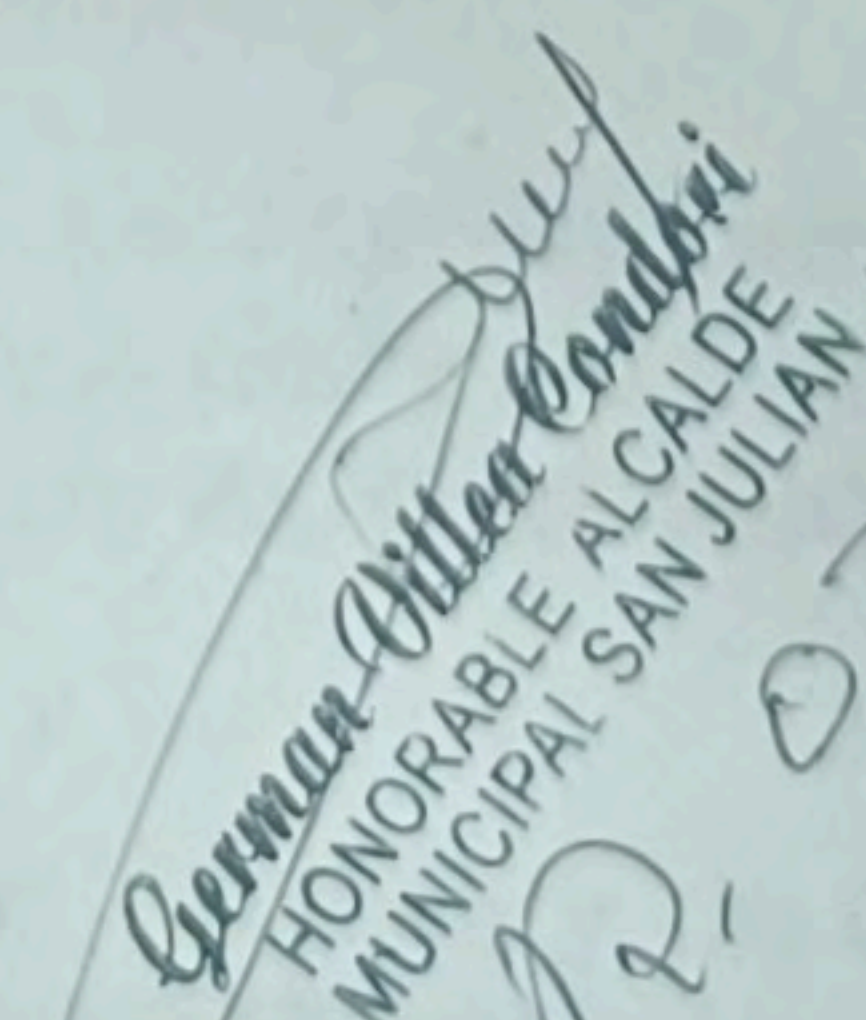 German Villca Condori
HONORABLE ALCALDE
MUNICIPAL SAN JULIAN